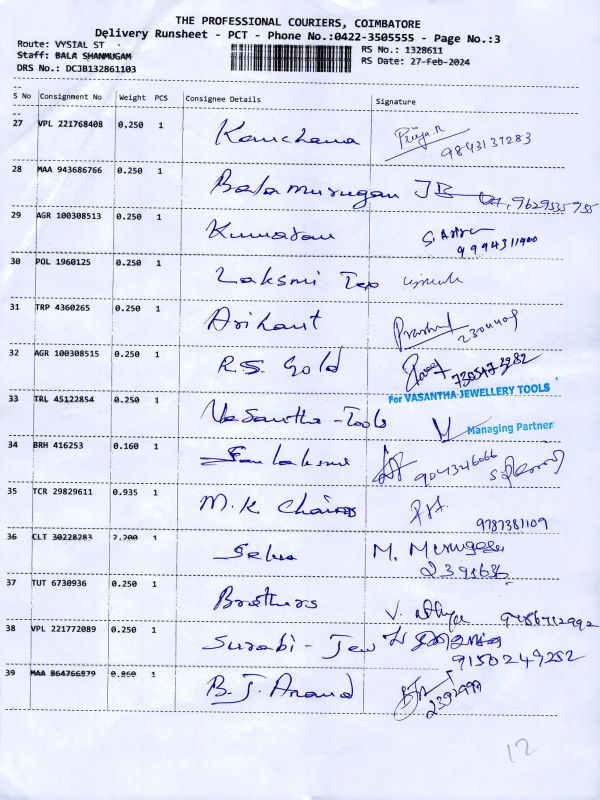 THE PROFESSIONAL COURIERS, COIMBATORE
Delivery Runsheet - PCT - Phone No.:0422-3505555 - Page No.:3
Route: VYSIAL ST RS No.: 1328611
Staff: BALA SHANMUGAM RS Date: 27-Feb-2024
DRS No.: DCJB132861103
S No Consignment No Weight PCS Consignee Details Signature
27 VPL 221768408 0.250 1 Kanchana Priya R
9843137283
28 MAA 943686766 0.250 1 Balamurugan JB 9629535755
29 AGR 100308513 0.250 1 Kumaran
9994311900
30 POL 1960125 0.250 1 Laksmi Top
31 TRP 4360265 0.250 1 Arihant Prashant
2301409
32 AGR 100308515 0.250 1 R.S. Gold
7305473282
For VASANTHA JEWELLERY TOOLS
33 TRL 45122854 0.250 1 Vasantha - Tools
Managing Partner
34 BRH 416253 0.160 1 9043346066
35 TCR 29829611 0.935 1 M.K Chains
9787381109
36 CLT 30228283 2.200 1 Selva M. Murugesa
2391686
37 TUT 6730936 0.250 1 Brothers V.
38 VPL 221772089 0.250 1 Surabi - Jew
9150249252
39 MAA 864766979 0.860 1 B.J. Anand
2392999
12